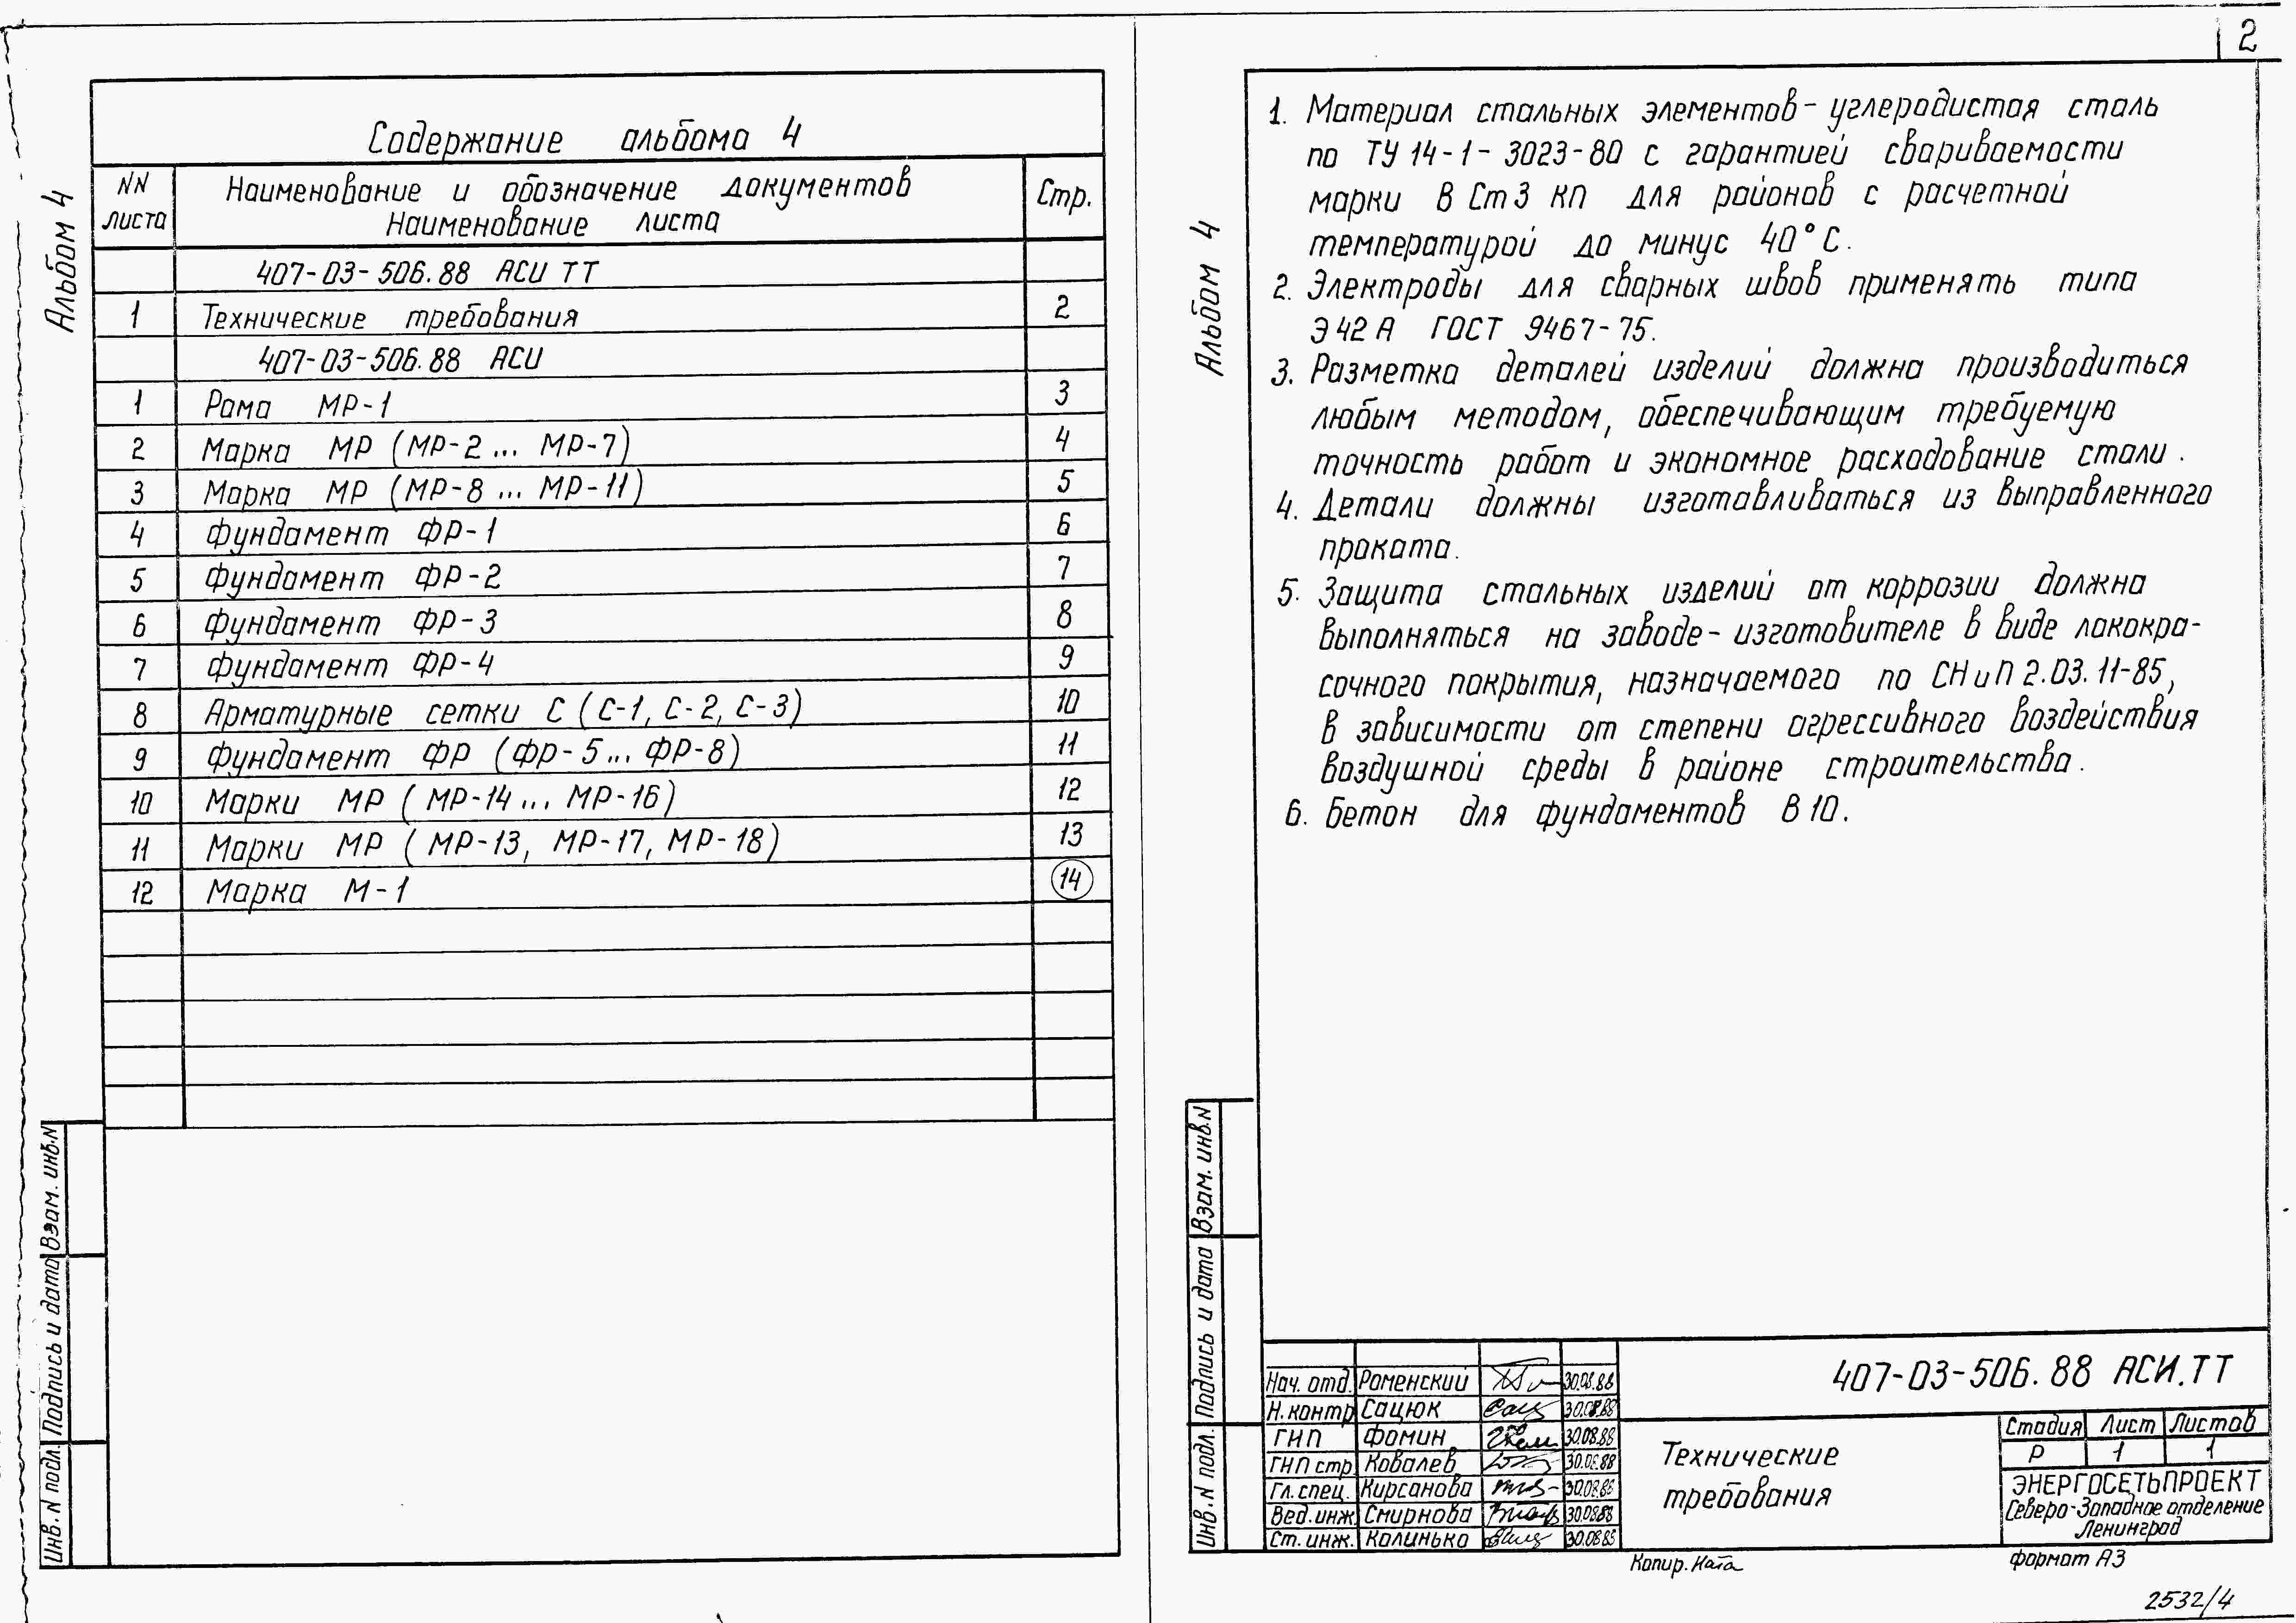 2
Альбом 4
Содержание альбома 4
NN листа
Наименование и обозначение документов
Наименование листа
Стр.
407-03-506.88 АСИ ТТ
1 Технические требования 2
407-03-506.88 АСИ
1 Рама МР-1 3
2 Марка МР (МР-2 ... МР-7) 4
3 Марка МР (МР-8 ... МР-11) 5
4 Фундамент ФР-1 6
5 Фундамент ФР-2 7
6 Фундамент ФР-3 8
7 Фундамент ФР-4 9
8 Арматурные сетки С (С-1, С-2, С-3) 10
9 Фундамент ФР (ФР-5... ФР-8) 11
10 Марки МР (МР-14 ... МР-16) 12
11 Марки МР (МР-13, МР-17, МР-18) 13
12 Марка М-1 14
Взам. инв.N
Подпись и дата
Инв.N подл.
Альбом 4
1. Материал стальных элементов - углеродистая сталь
по ТУ 14-1-3023-80 с гарантией свариваемости
марки В Ст3 кп для районов с расчетной
температурой до минус 40°С.
2. Электроды для сварных швов применять типа
Э42А ГОСТ 9467-75.
3. Разметка деталей изделий должна производиться
любым методом, обеспечивающим требуемую
точность работ и экономное расходование стали.
4. Детали должны изготавливаться из выправленного
проката.
5. Защита стальных изделий от коррозии должна
выполняться на заводе-изготовителе в виде лакокра-
сочного покрытия, назначаемого по СНиП 2.03.11-85,
в зависимости от степени агрессивного воздействия
воздушной среды в районе строительства.
6. Бетон для фундаментов В10.
Взам. инв.N
Подпись и дата
Инв.N подл.
Нач. отд. Роменский 30.08.88
Н.контр Сацюк 30.08.88
ГИП Фомин 30.08.88
ГИП стр. Ковалев 30.08.88
Гл.спец. Кирсанова 30.08.88
Вед.инж. Смирнова 30.08.88
Ст. инж. Калинько 30.08.88
407-03-506.88 АСИ.ТТ
Технические
требования
Стадия Лист Листов
Р 1 1
ЭНЕРГОСЕТЬПРОЕКТ
Северо-Западное отделение
Ленинград
Копир. Ката
формат А3
2532/4